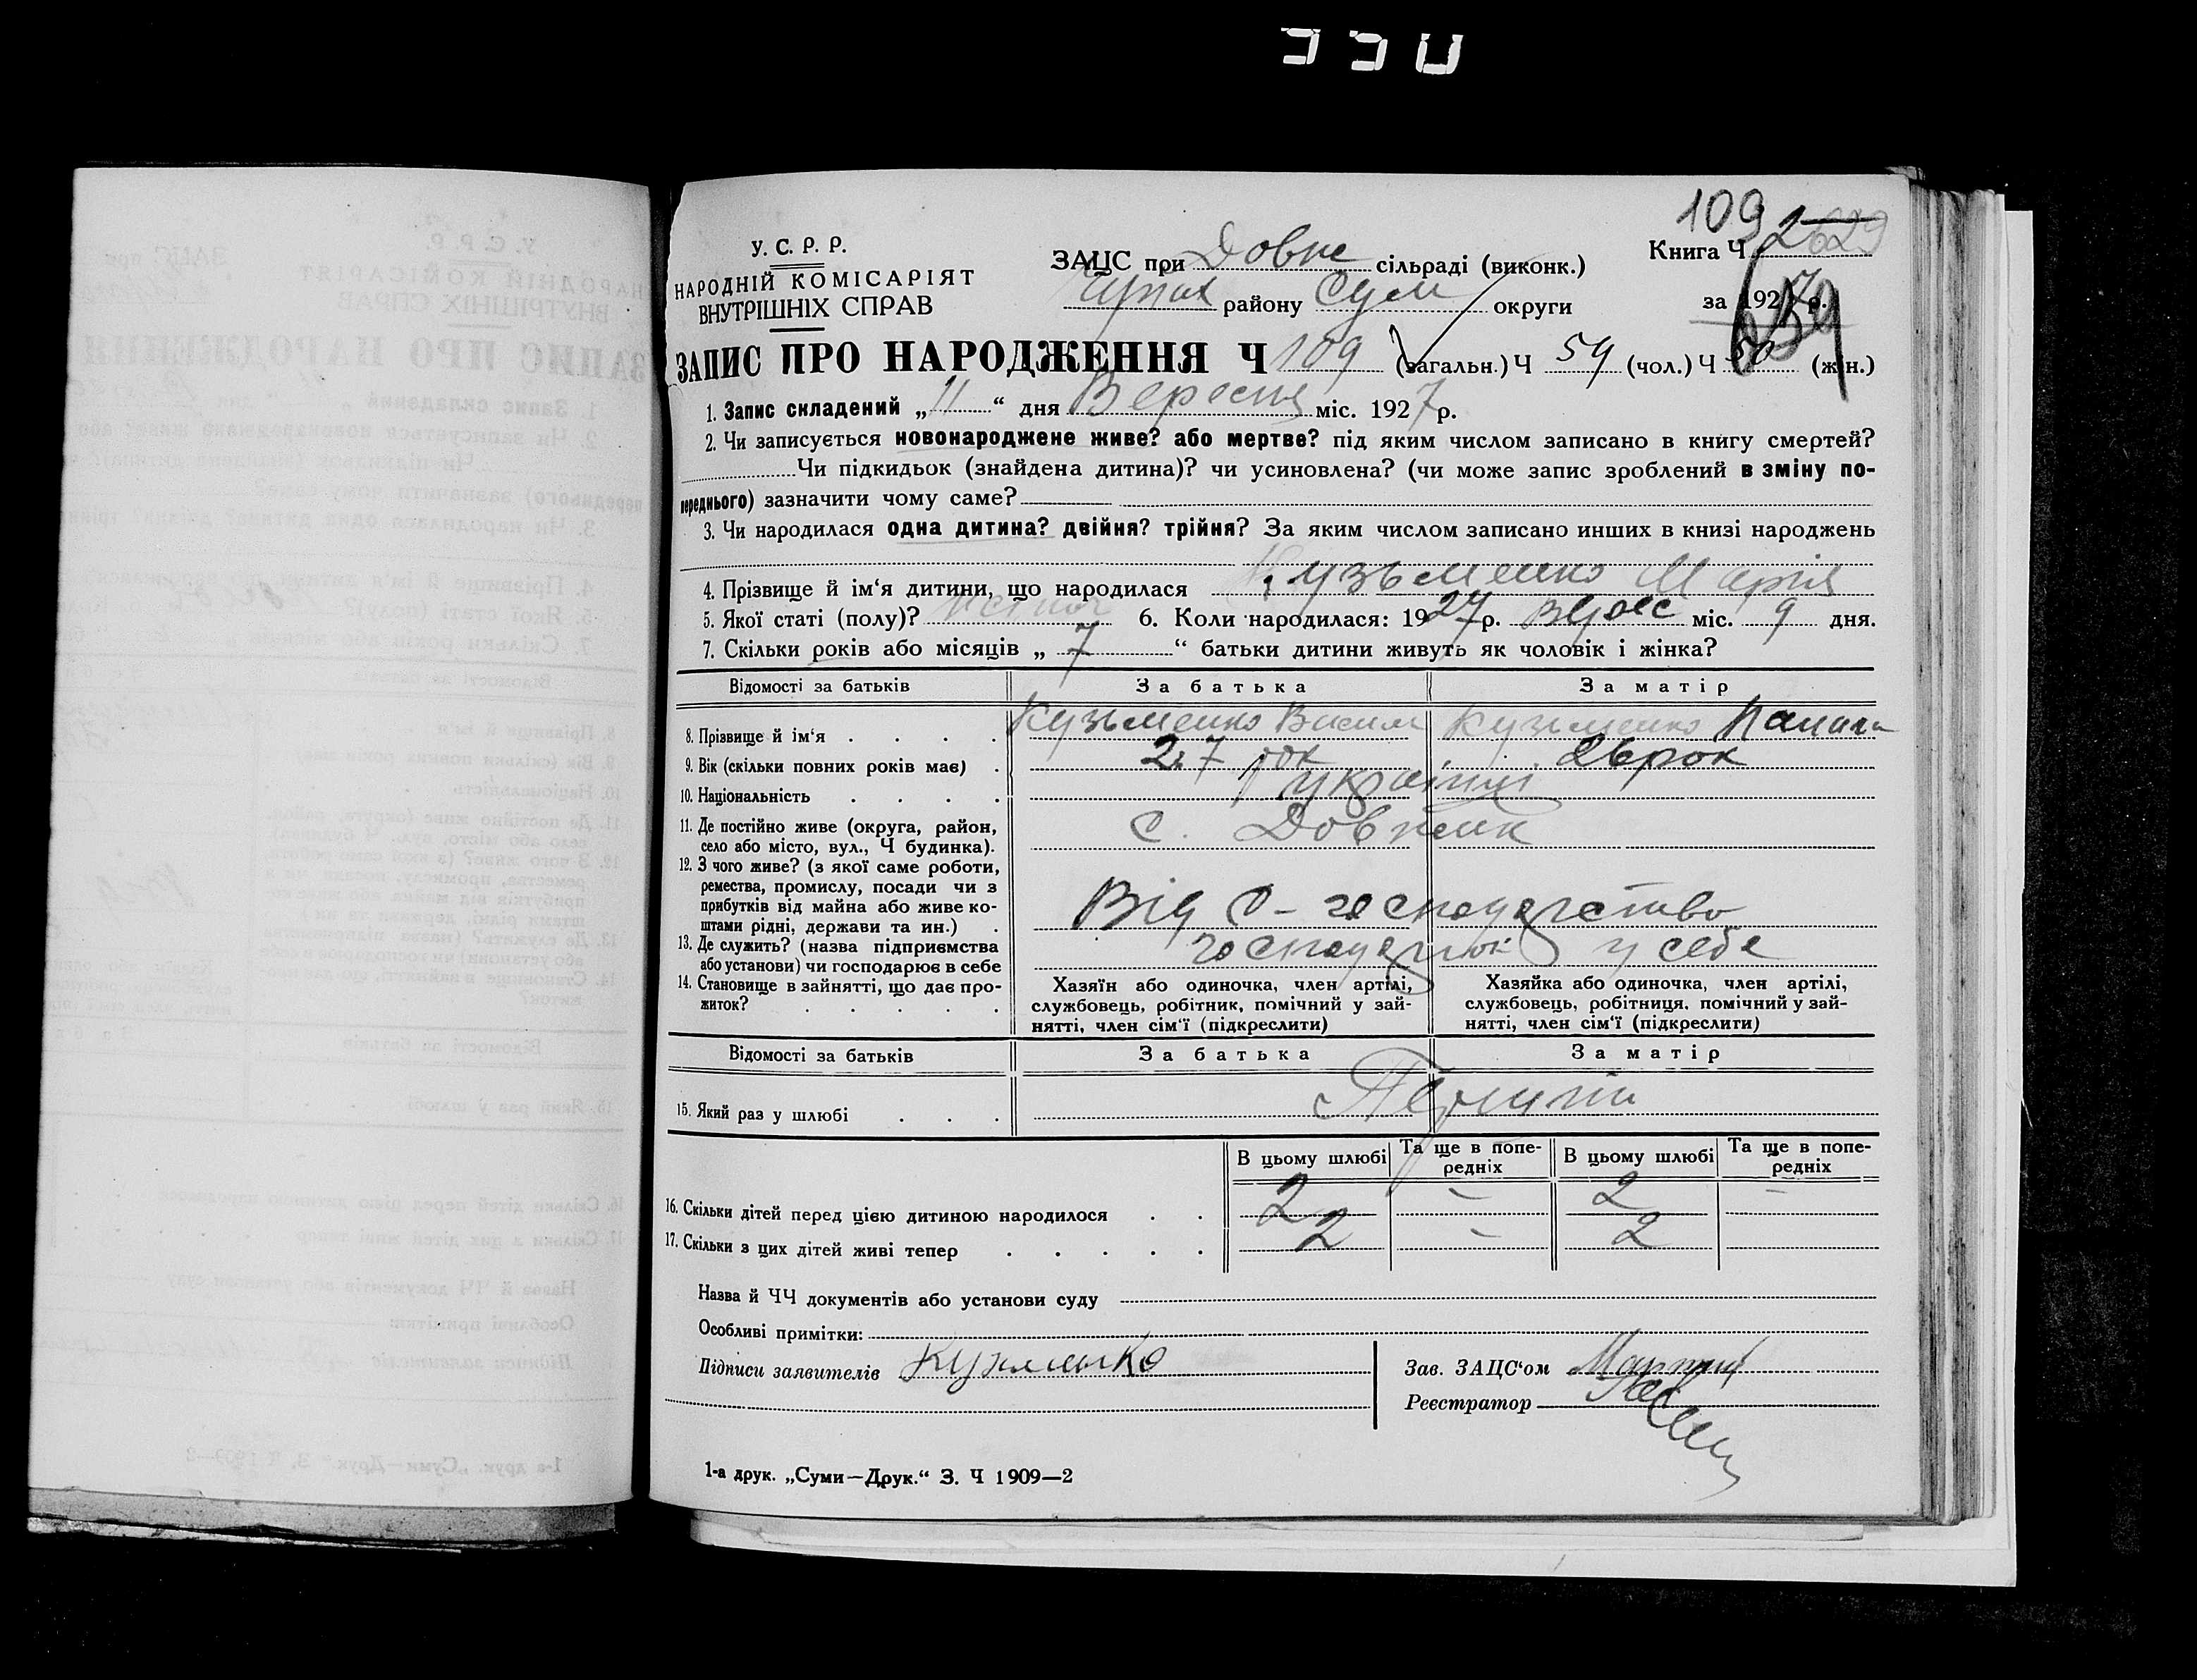 330
109
У. С. Р. Р.
НАРОДНІЙ КОМІСАРІЯТ
ВНУТРІШНІХ СПРАВ
ЗАЦС при Довж сільраді (виконк.)
району Сум округи
Книга Ч 2 629
за 1927 р.
ЗАПИС ПРО НАРОДЖЕННЯ Ч 109 (загальн.) Ч 59 (чол.) Ч 50 (жін.)
1. Запис складений „ 11 “ дня Вересня міс. 1927 р.
2. Чи записується новонароджене живе? або мертве? під яким числом записано в книгу смертей?
Чи підкидьок (знайдена дитина)? чи усиновлена? (чи може запис зроблений в зміну по-
переднього) зазначити чому саме?
3. Чи народилася одна дитина? двійня? трійня? За яким числом записано инших в книзі народжень
4. Прізвище й ім‘я дитини, що народилася Кузьменко Марія
5. Якої статі (полу)? жіноч 6. Коли народилася: 1927 р. міс. 9 дня.
7. Скільки років або місяців „ 7 “ батьки дитини живуть як чоловік і жінка?
Відомості за батьків За батька За матір
8. Прізвище й ім‘я . . . . Кузьменко Васил Кузьменко
9. Вік (скільки повних років має) . 27 рок 26 рок
10. Національність . . . . Українці
11. Де постійно живе (округа, район,
село або місто, вул., Ч будинка). с. Довжик
12. З чого живе? (з якої саме роботи,
ремества, промислу, посади чи з
прибутків від майна або живе ко-
штами рідні, держави та ин.) . Від С-господарство
13. Де служить? (назва підприємства
або установи) чи господарює в себе господарюють у себе
14. Становище в зайнятті, що дає про-
житок? . . . . .
Хазяїн або одиночка, член артілі,
службовець, робітник, помічний у зай-
нятті, член сім‘ї (підкреслити)
Хазяйка або одиночка, член артілі,
службовець, робітниця, помічний у зай-
нятті, член сім‘ї (підкреслити)
Відомості за батьків За батька За матір
15. Який раз у шлюбі . . . Перший
В цьому шлюбі Та ще в попе-
редніх В цьому шлюбі Та ще в попе-
редніх
16. Скільки дітей перед цією дитиною народилося . . 2 - 2 -
17. Скільки з цих дітей живі тепер . . . . . 2 - 2
Назва й ЧЧ документів або установи суду
Особливі примітки:
Підписи заявителів Кузменко
Зав. ЗАЦС‘ом
Реєстратор
1-а друк. „Суми—Друк.“ З. Ч 1909—2